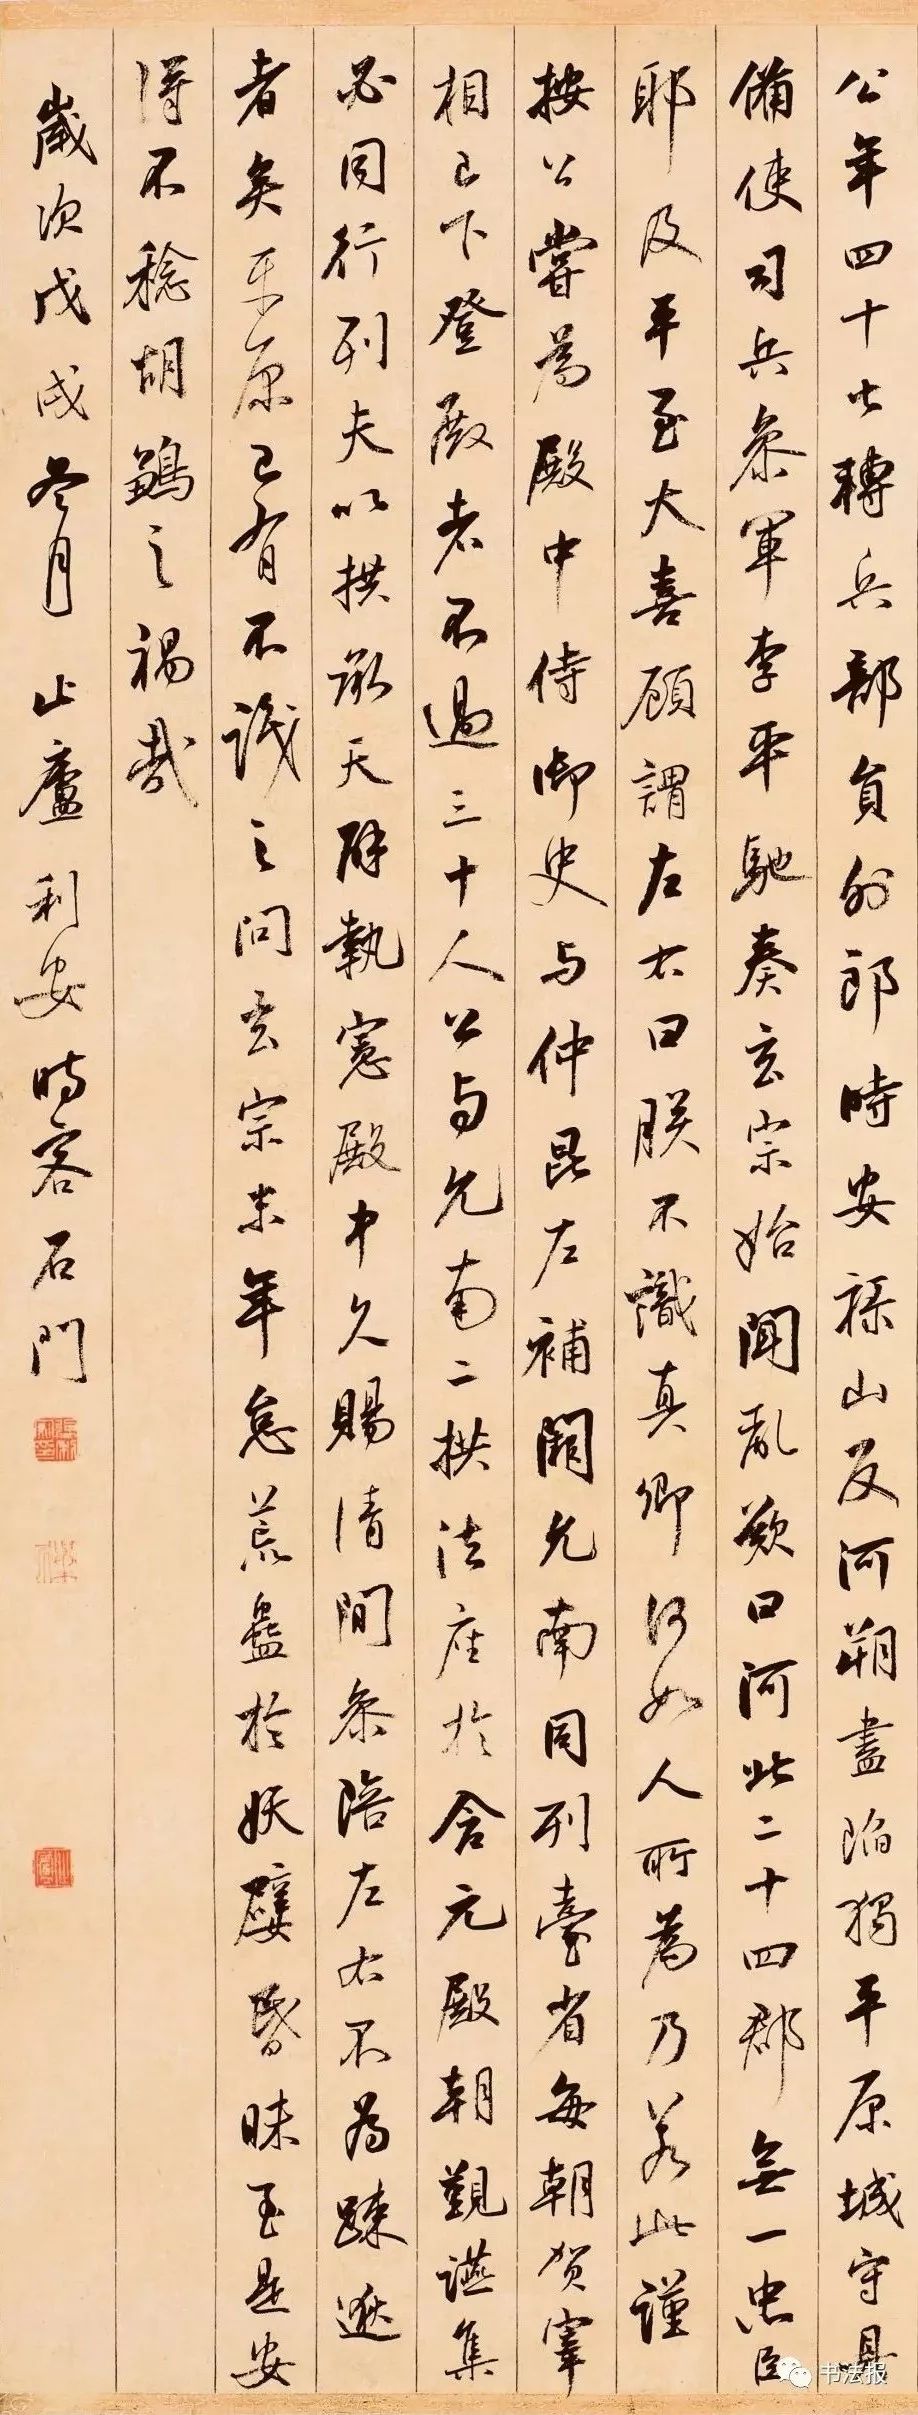 公年四十七轉兵部員外郎時安祿山反河朔盡陷獨平原城守具
備使司兵參軍李平馳奏玄宗始聞亂歎曰河北二十四郡無一忠臣
耶及平至大喜顧謂左右曰朕不識真卿何如人所為乃若此謹
按公嘗為殿中侍御史与仲昆左補闕允南同列臺省每朝賀宰
相已下登殿者不過三十人公与允南二拱法座於含元殿朝覲讌集
必同行列夫以拱承天辟執憲殿中久賜清間參陪左右不為踈逖
者矣平原已有不識之問玄宗末年怠荒蠱於妖嬖昏昧至是安
得不稔胡鶵之禍哉
歲次戊戌冬月止廬利安時客石門
书法报